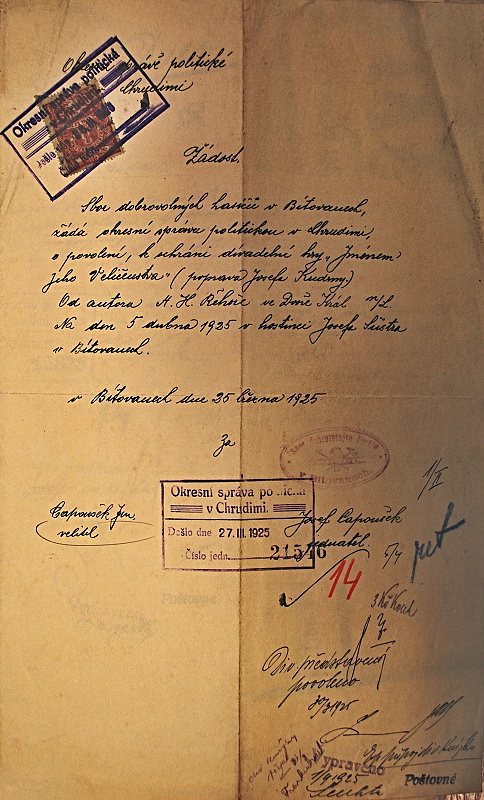 Okresní správě politické
Chrudimi
Okresní správa politická
Došlo dne
Žádost.
Sbor dobrovolných hasičů v Bítovanech,
žádá okresní správu politickou v Chrudimi,
o povolení, k sehrání divadelní hry "Jménem
Jeho Veličenstva" (poprava Josefa Kudrny)
Od autora A. H. Řehoře ve Dvoře Král n/L.
Na den 5 dubna 1925 v hostinci Josefa Šustra
v Bítovanech.
v Bítovanech dne 25 března 1925
Za
Sbor dobrovolných hasičů
v Bítovanech
1/II
Okresní správa politická
v Chrudimi.
Došlo dne 27.III.1925
Číslo jedn. 21546
Capoušek Jan
velitel
Josef Capoušek
jednatel
5/4
14
3 Kč
Div. představení
povoleno
1925
Vypraveno
1/4 1925
Poštovné